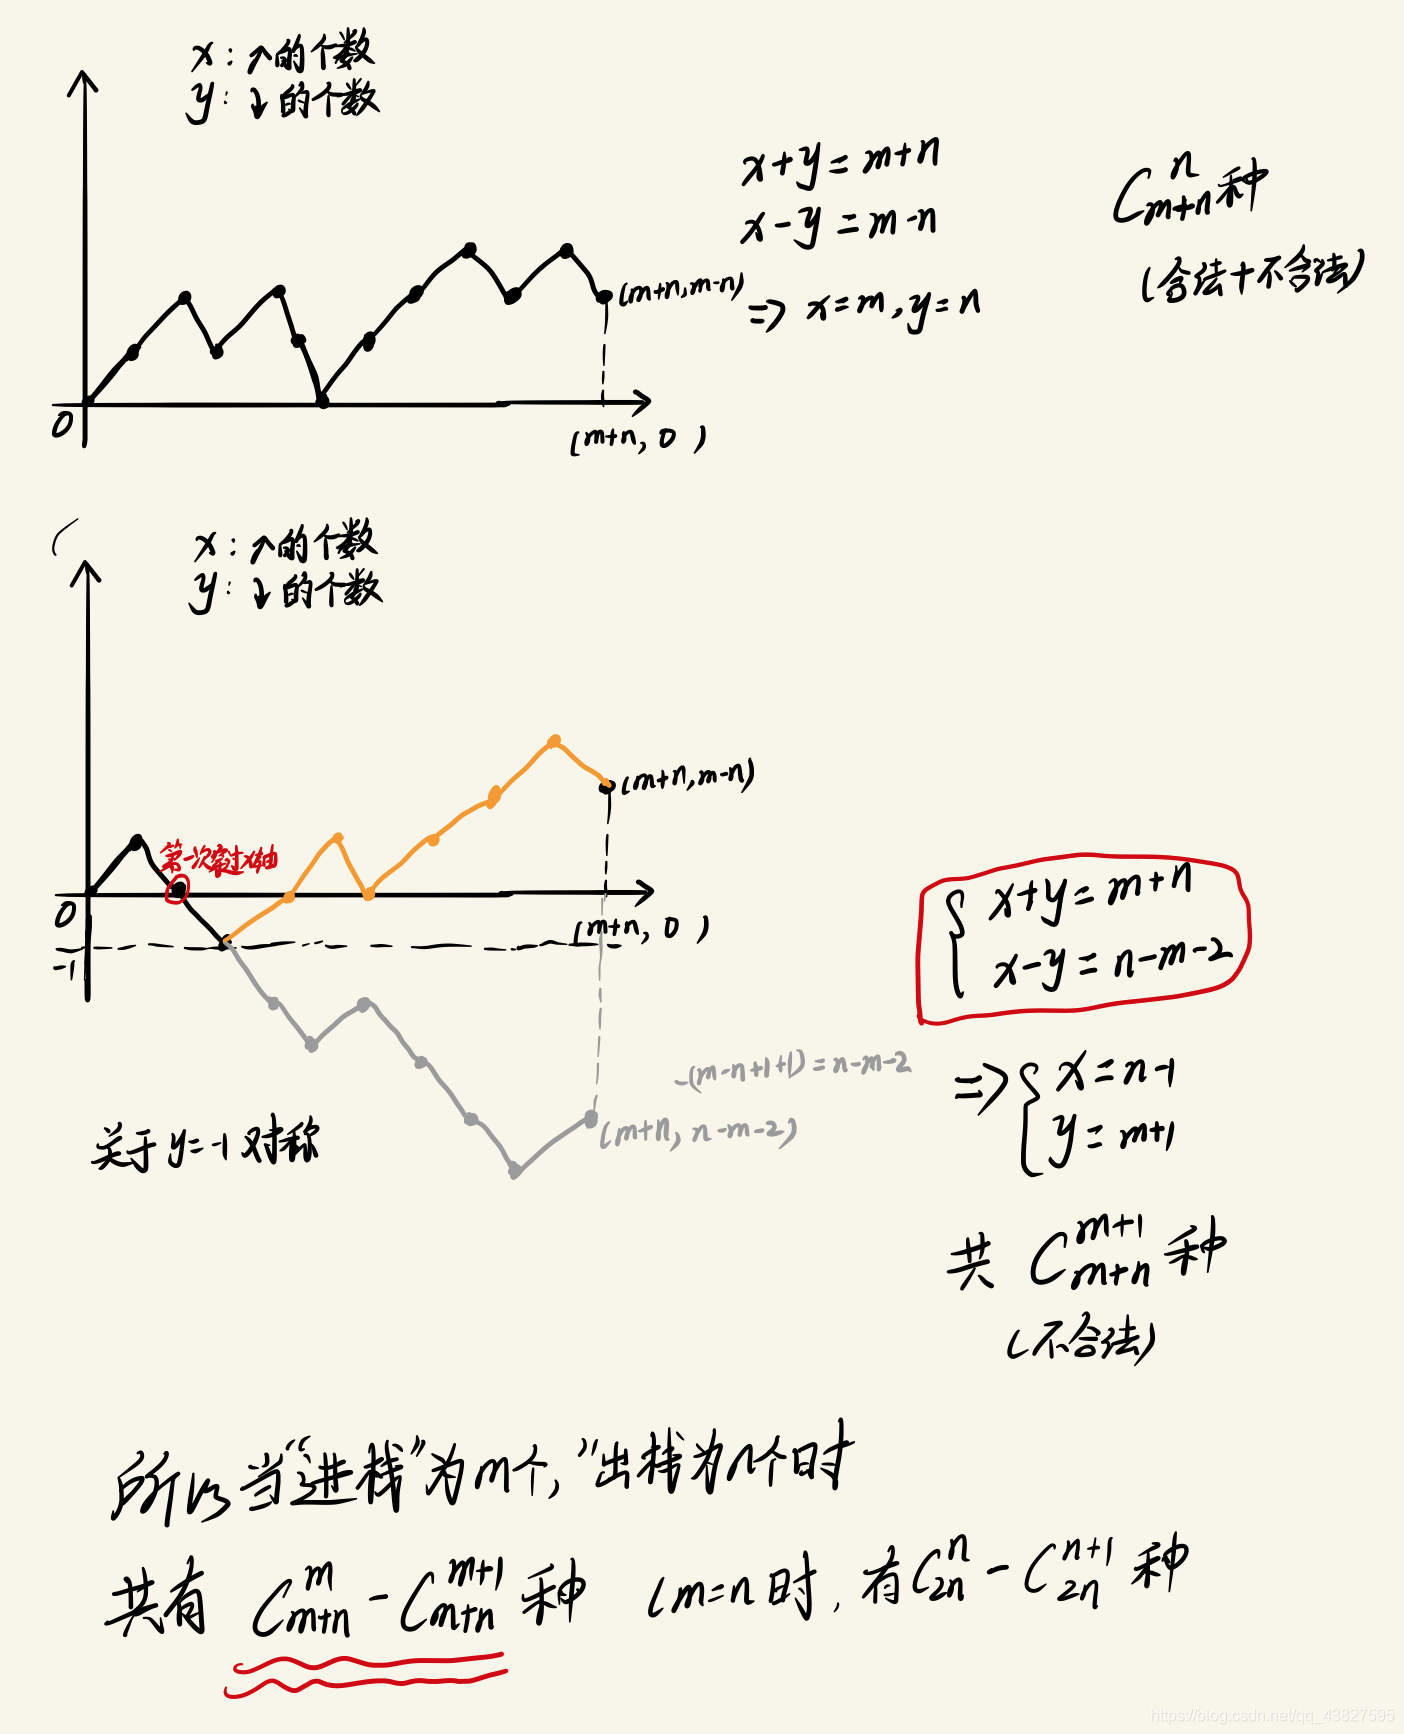 x：↗的个数
y：↓的个数
x+y=m+n
x-y=m-n
=> x=m,y=n
C_{m+n}^{n}种
(合法+不合法)
(m+n,m-n)
0
(m+n, 0 )
x：↗的个数
y：↓的个数
(m+n,m-n)
第一次穿过x轴
0
(m+n, 0 )
-1
x+y=m+n
x-y=n-m-2
-(m-n+1+1)=n-m-2
(m+n, n-m-2)
=> x=n-1
y=m+1
关于y=-1对称
共 C_{m+n}^{m+1}种
(不合法)
所以当"进栈"为m个,"出栈为n个时
共有 C_{m+n}^{m}-C_{m+n}^{m+1}种 (m=n时,有C_{2n}^{n}-C_{2n}^{n+1}种
https://blog.csdn.net/qq_43827595